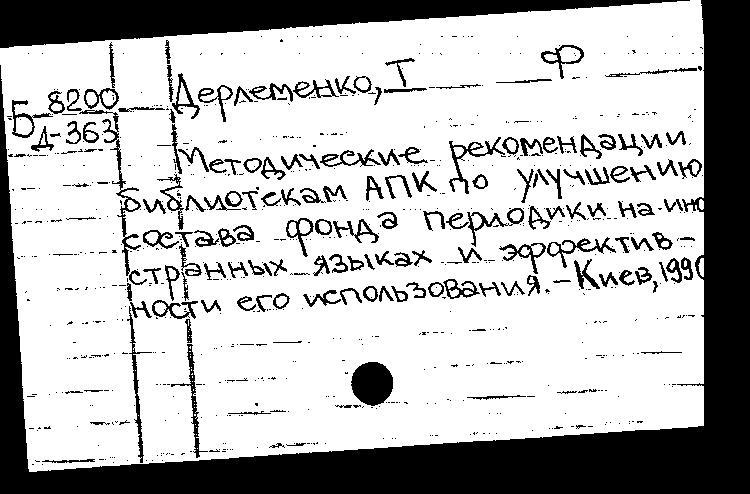 Б 8200
Д-363
Дерлеменко, Т Ф
Методические рекомендации
библиотекам АПК по улучшению
состава фонда периодики на ино
странных языках и эффектив-
ности его использования. – Киев, 1990